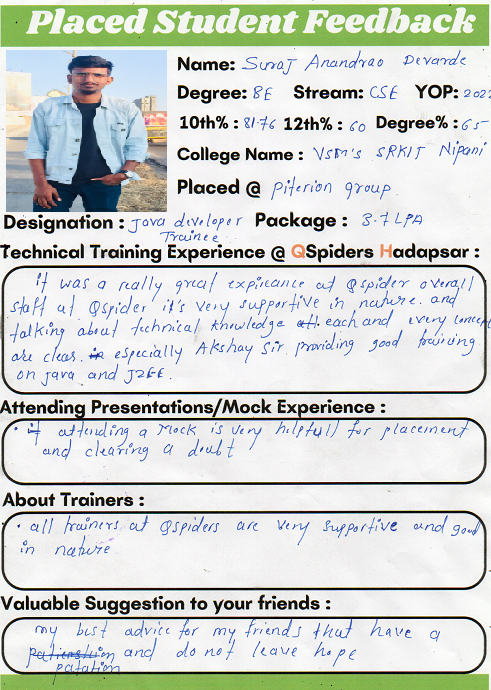 Placed Student Feedback
Name: Suraj Anandrao Devarde
Degree: BE Stream: CSE YOP: 202
10th% : 81.76 12th% : 60 Degree% : 65
College Name : VSM's SRKIT Nipani
Placed @ Piterion group
Designation : Java developer Package : 3.7 LPA
Trainee
Technical Training Experience @ QSpiders Hadapsar :
it was a really great expirance at Qspider overall
staff at Qspider it's very supportive in nature. and
talking about technical knowledge each and every concept
are clear. especially Akshay Sir. providing good training
on java and J2EE.
Attending Presentations/Mock Experience :
• if attending a Mock is very helpfull for placement
and clearing a doubt
About Trainers :
• all trainers at Qspiders are very supportive and good
in nature
Valuable Suggestion to your friends :
my best advice for my friends that have a
and do not leave hope
patation